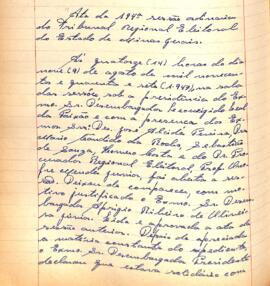 Ata da 194ª sessão ordinaria
do Tribunal Regional Eleitoral
do Estado de Minas Gerais.
Às quatorze (14) horas do dia
nove (9) de agosto de mil novecen-
tos e quarenta e sete (1.947), na sala
das sessões, sob a presidencia do Exmo.
Sr. Desembargador Leovigildo Leal
da Paixão e com a presença dos Ex-
mos. Srs. Des. José Alcides Pereira,
Candido da Rocha, Sebastião
de Souza, e do Dr. Pro-
curador Regional Eleitoral, Prof. Ono-
fre Mendes Junior, foi aberta a ses-
são. Deixou de comparecer, com mo-
tivo justificado o Exmo. Sr. Desem-
bargador Aprigio Ribeiro de Oliveira
Junior. Lida e aprovada a ata da
sessão anterior. Depois de apreciada
a materia constante do expediente,
o Exmo. Sr. Desembargador Presidente
declarou que estava solidario com